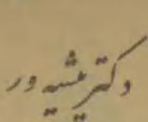 دکتر شیدور